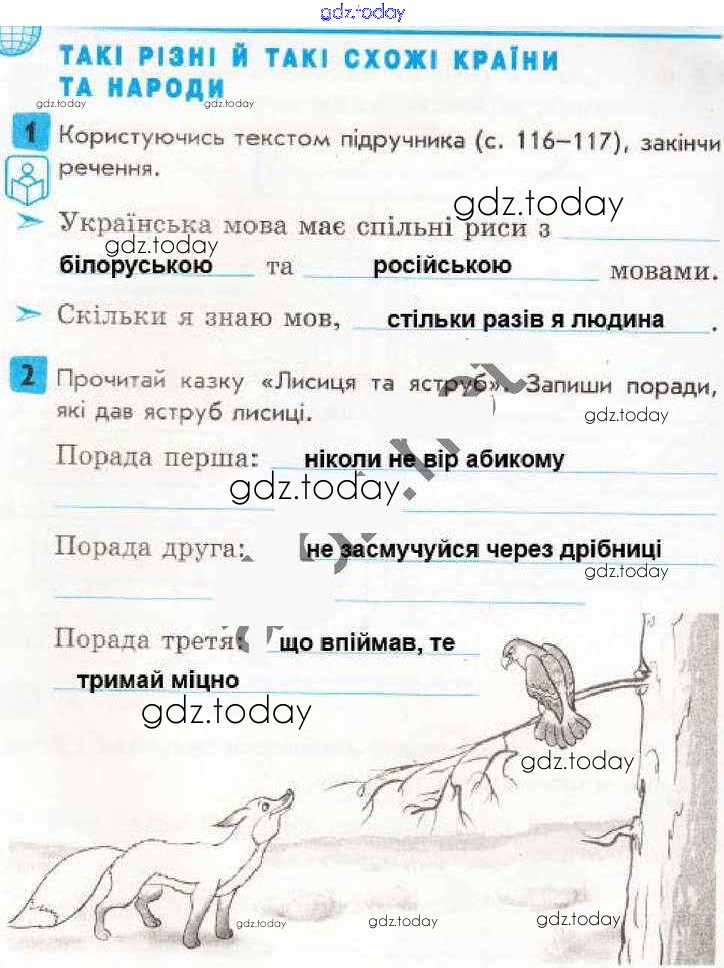 gdz.today
ТАКІ РІЗНІ Й ТАКІ СХОЖІ КРАЇНИ
ТА НАРОДИ
gdz.today gdz.today
1 Користуючись текстом підручника (с. 116–117), закінчи
речення.
gdz.today
➢ Українська мова має спільні риси з
gdz.today
білоруською та російською мовами.
➢ Скільки я знаю мов, стільки разів я людина .
2 Прочитай казку «Лисиця та яструб». Запиши поради,
які дав яструб лисиці.
gdz.today
Порада перша: ніколи не вір абикому
gdz.today
Порада друга: не засмучуйся через дрібниці
gdz.today
Порада третя: що впіймав, те
тримай міцно
gdz.today
gdz.today
gdz.today gdz.today gdz.today